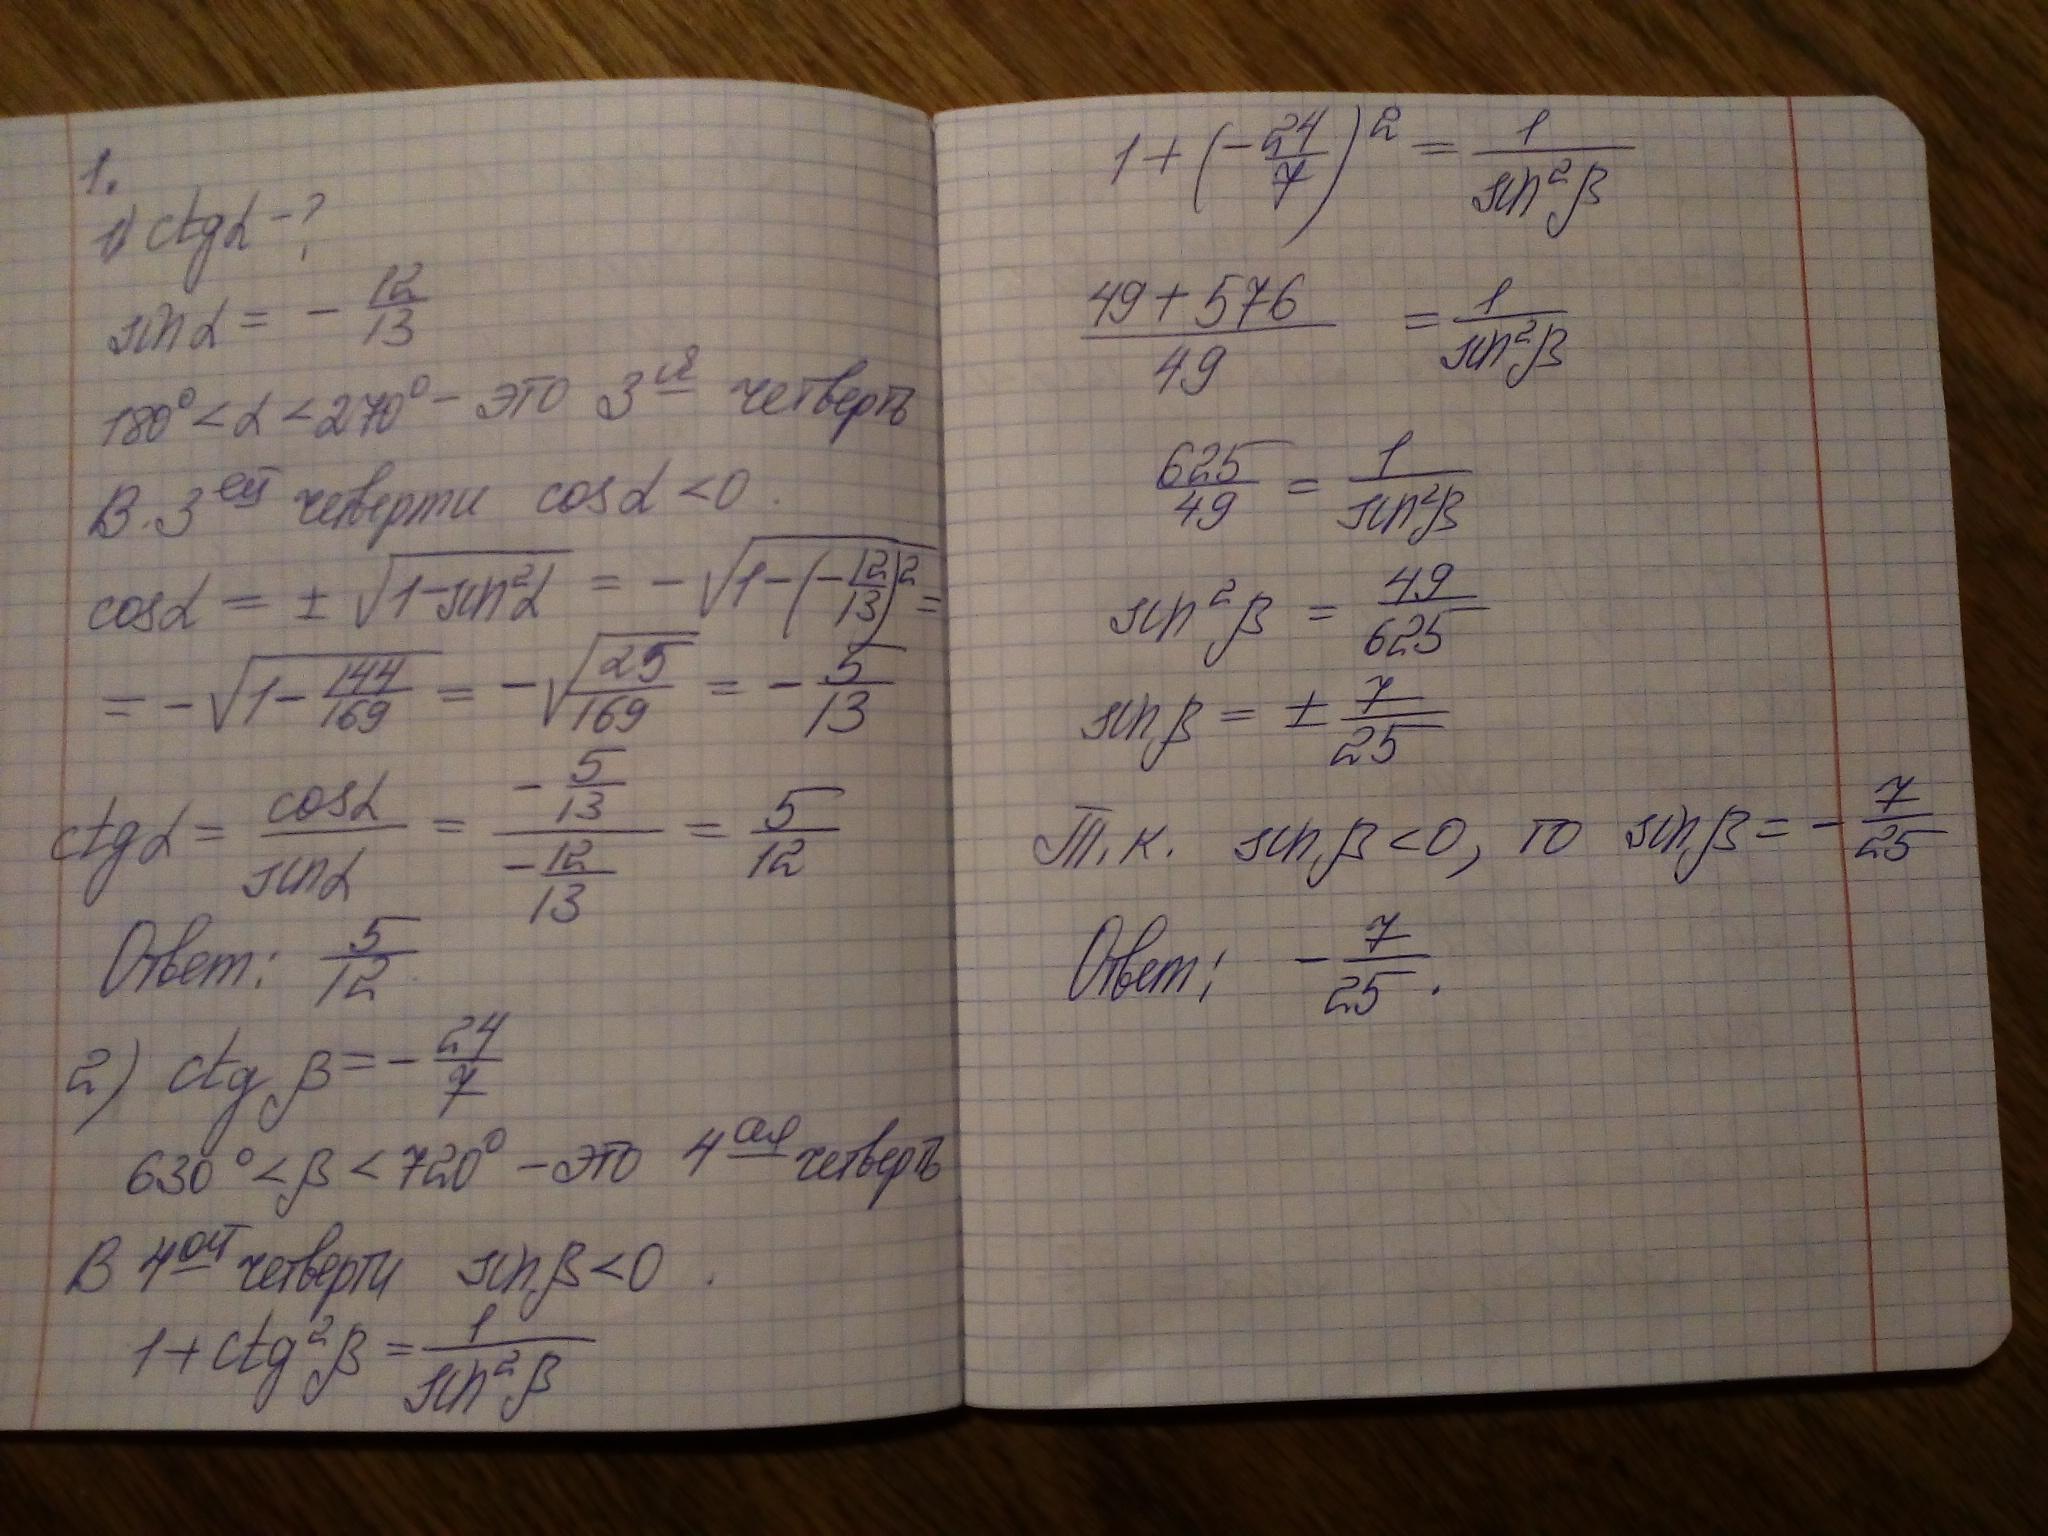 1.
1) ctgα - ?
sinα = - 12/13
180° < α < 270° - это 3ья четверть
В 3ей четверти cosα < 0.
cosα = ± √(1-sin²α) = - √(1-(-12/13)²) =
= - √(1 - 144/169) = - √(25/169) = - 5/13
ctgα = cosα/sinα = (-5/13)/(-12/13) = 5/12
Ответ: 5/12.
2) ctg β = - 24/7
630° < β < 720° - это 4ая четверть
В 4ой четверти sin β < 0.
1 + ctg²β = 1/sin²β
1 + (-24/7)² = 1/sin²β
(49 + 576)/49 = 1/sin²β
625/49 = 1/sin²β
sin²β = 49/625
sin β = ± 7/25
Т.к. sin β < 0, то sin β = - 7/25
Ответ: - 7/25.